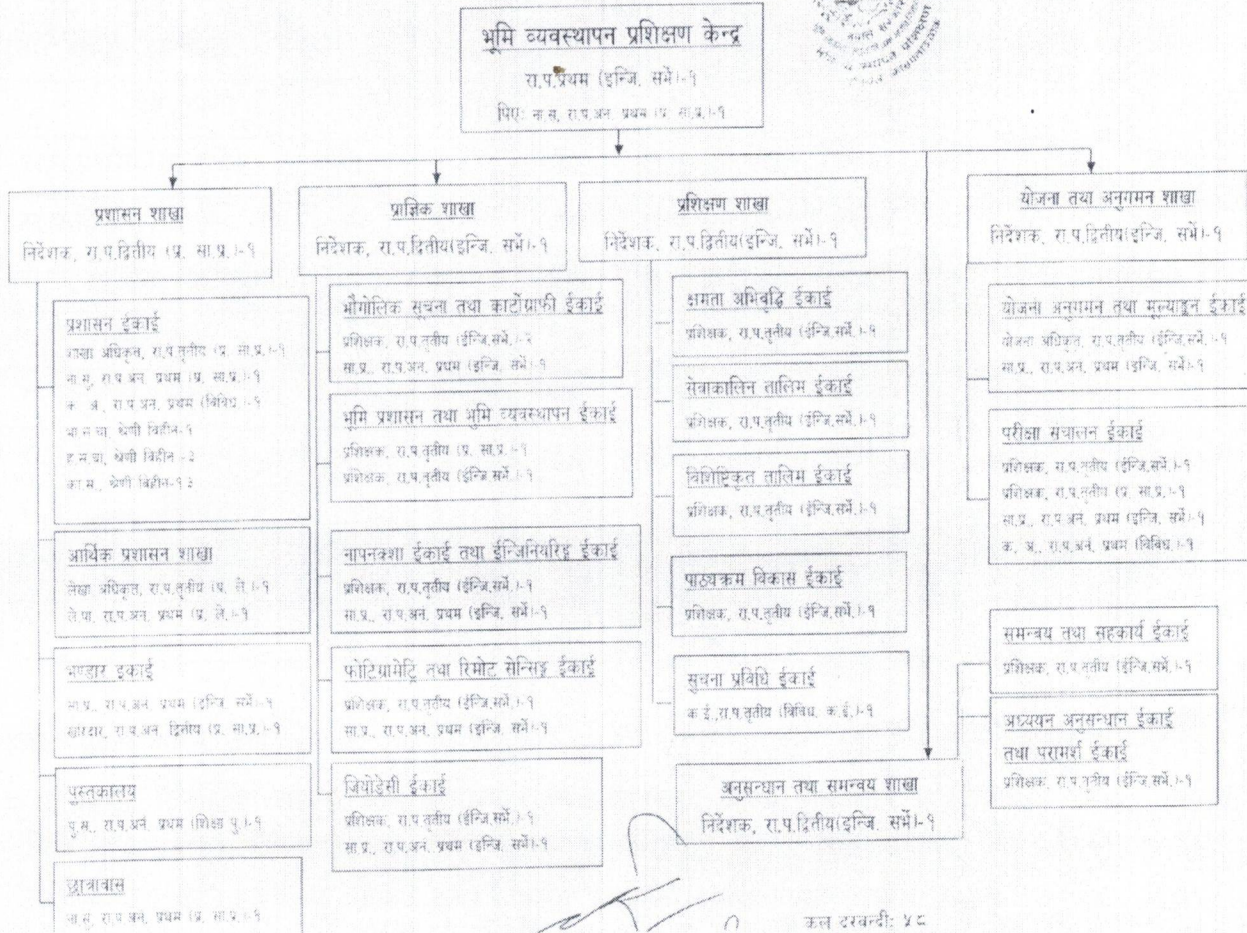 भूमि व्यवस्थापन प्रशिक्षण केन्द्र
रा.प.प्रथम (इन्जि. सर्भे)-१
पिए: ना.सु. रा.प.अन. प्रथम (प्र. सा.प्र.)-१
प्रशासन शाखा
निर्देशक, रा.प.द्वितीय (प्र. सा.प्र.)-१
प्रशासन ईकाई
शाखा अधिकृत, रा.प.तृतीय (प्र. सा.प्र.)-१
ना.सु. रा.प.अन. प्रथम (प्र. सा.प्र.)-१
क. अ., रा.प.अन. प्रथम (विविध)-१
श्रेणी विहीन-१
ह.स.चा. श्रेणी विहीन-३
का.स., श्रेणी विहीन-१३
आर्थिक प्रशासन शाखा
लेखा अधिकृत, रा.प.तृतीय (प्र. ले.)-१
ले.पा. रा.प.अन. प्रथम (प्र. ले.)-१
भण्डार इकाई
सा.प्र., रा.प.अन. प्रथम (इन्जि. सर्भे)-१
खरिदार, रा.प.अन. द्वितीय (प्र. सा.प्र.)-१
पुस्तकालय
पु.स., रा.प.अनं. प्रथम (शिक्षा पु.)-१
छात्रावास
ना.सु. रा.प.अनं. प्रथम (प्र. सा.प्र.)-१
प्राज्ञिक शाखा
निर्देशक, रा.प.द्वितीय(इन्जि. सर्भे)-१
भौगोलिक सूचना तथा कार्टोग्राफी ईकाई
प्रशिक्षक, रा.प.तृतीय (ईन्जि.सर्भे)-२
सा.प्र., रा.प.अन. प्रथम (इन्जि. सर्भे)-१
भूमि प्रशासन तथा भूमि व्यवस्थापन ईकाई
प्रशिक्षक, रा.प.तृतीय (प्र. सा.प्र.)-१
प्रशिक्षक, रा.प.तृतीय (ईन्जि.सर्भे)-१
नापनक्शा ईकाई तथा ईन्जिनियरिङ्ग ईकाई
प्रशिक्षक, रा.प.तृतीय (ईन्जि.सर्भे)-१
सा.प्र., रा.प.अनं. प्रथम (इन्जि. सर्भे)-१
फोटिग्रामेट्रि तथा रिमोट सेन्सिङ्ग ईकाई
प्रशिक्षक, रा.प.तृतीय (ईन्जि.सर्भे)-१
सा.प्र., रा.प.अन. प्रथम (इन्जि. सर्भे)-१
जियोडेसी ईकाई
प्रशिक्षक, रा.प.तृतीय (ईन्जि.सर्भे)-१
सा.प्र., रा.प.अनं. प्रथम (इन्जि. सर्भे)-१
प्रशिक्षण शाखा
निर्देशक, रा.प.द्वितीय(इन्जि. सर्भे)-१
क्षमता अभिबृद्धि ईकाई
प्रशिक्षक, रा.प.तृतीय (ईन्जि.सर्भे)-१
सेवाकालिन तालिम ईकाई
प्रशिक्षक, रा.प.तृतीय (ईन्जि.सर्भे.)-१
विशिष्टिकृत तालिम ईकाई
प्रशिक्षक, रा.प.तृतीय (ईन्जि.सर्भे.)-१
पाठ्यक्रम विकास ईकाई
प्रशिक्षक, रा.प.तृतीय (ईन्जि.सर्भे)-१
सुचना प्रविधि ईकाई
क.ई.,रा.प.तृतीय (विविध, क.ई.)-१
अनुसन्धान तथा समन्वय शाखा
निर्देशक, रा.प.द्वितीय(इन्जि. सर्भे)-१
योजना तथा अनुगमन शाखा
निर्देशक, रा.प.द्वितीय(इन्जि. सर्भे)-१
योजना अनुगमन तथा मूल्याङ्कन ईकाई
योजना अधिकृत, रा.प.तृतीय (ईन्जि.सर्भे.)-१
सा.प्र., रा.प.अन. प्रथम (इन्जि. सर्भे)-१
परीक्षा संचालन ईकाई
प्रशिक्षक, रा.प.तृतीय (ईन्जि.सर्भे)-१
प्रशिक्षक, रा.प.तृतीय (प्र. सा.प्र.)-१
सा.प्र., रा.प.अनं. प्रथम (इन्जि. सर्भे)-१
क. अ., रा.प.अनं. प्रथम (विविध.)-१
समन्वय तथा सहकार्य ईकाई
प्रशिक्षक, रा.प.तृतीय (ईन्जि.सर्भे)-१
अध्ययन अनुसन्धान ईकाई
तथा परामर्श ईकाई
प्रशिक्षक, रा.प.तृतीय (ईन्जि.सर्भे)-१
कूल दरबन्दी: ५८